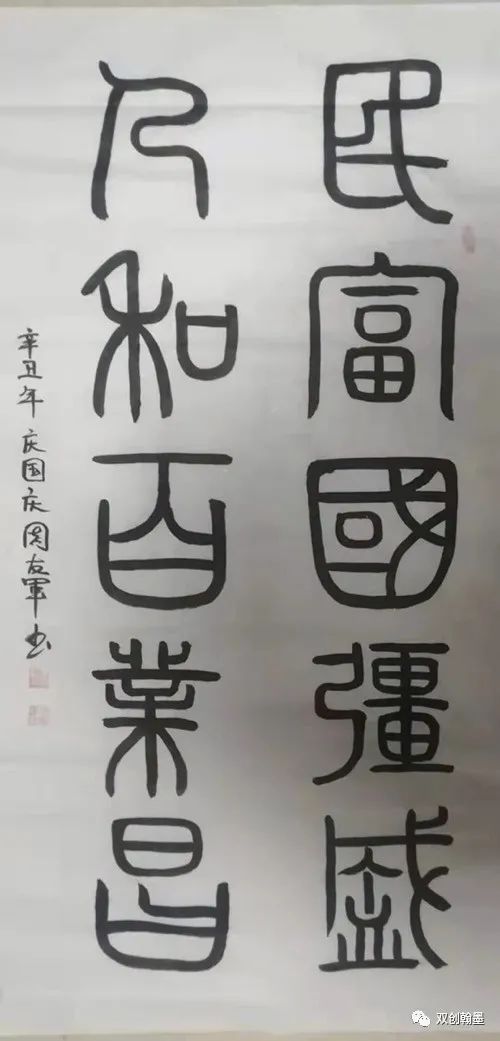 民富國彊盛
人和百業昌
辛丑年庆国庆周友軍书
双创翰墨